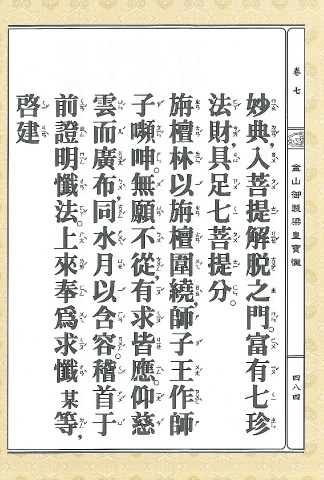 卷七
金山御製梁皇寶懺
四八四
妙典,入菩提解脫之門。富有七珍
法財,具足七菩提分。
旃檀林以旃檀圍繞,師子王作師
子嚬呻。無願不從,有求皆應。仰慈
雲而廣布,同水月以含容。稽首于
前,證明懺法。上來奉爲求懺某等,
啓建